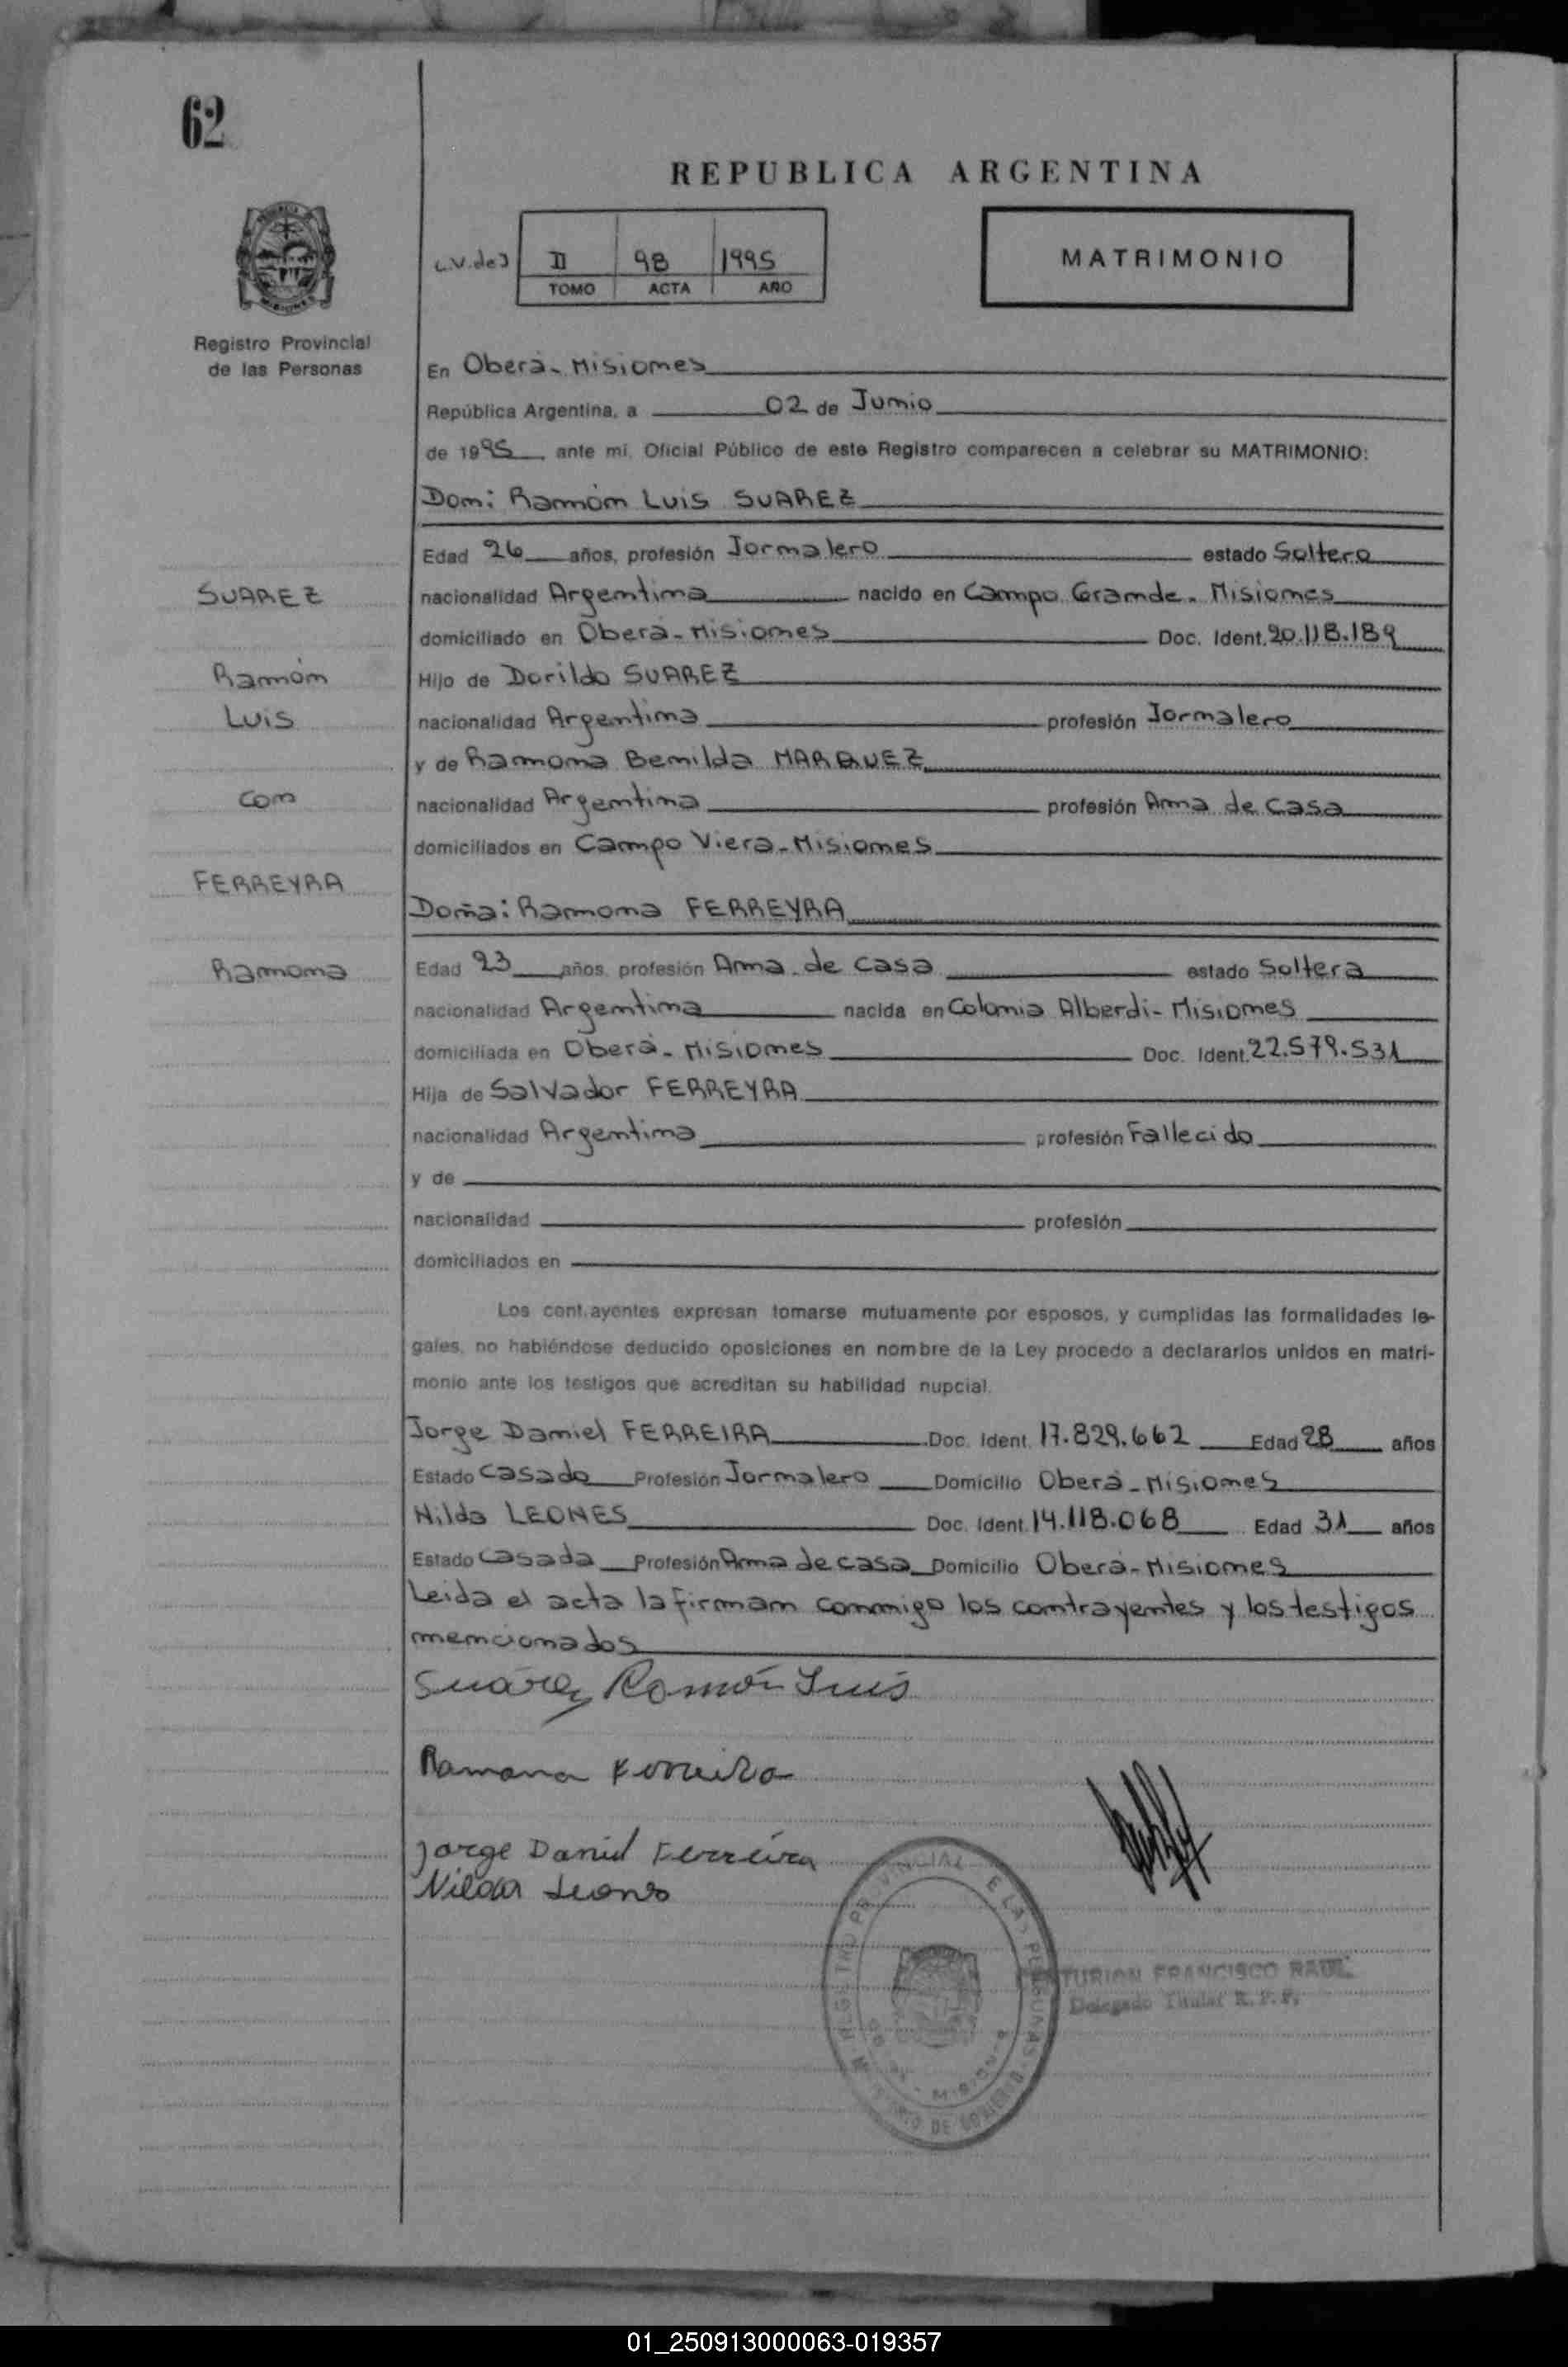 62
REPUBLICA ARGENTINA
L.V.de J
II 98 1995
TOMO ACTA AÑO
MATRIMONIO
Registro Provincial
de las Personas
En Oberá - Misiones
República Argentina, a 02 de Junio
de 1995 ante mi, Oficial Público de este Registro comparecen a celebrar su MATRIMONIO:
Don: Ramón Luis SUAREZ
Edad 26 años, profesión Jornalero estado Soltero
SUAREZ
nacionalidad Argentina nacido en Campo Grande - Misiones
domiciliado en Oberá - Misiones Doc. Ident. 20.118.189
Ramón
Hijo de Dorildo SUAREZ
Luis
nacionalidad Argentina profesión Jornalero
y de Ramona Benilda MARQUEZ
con
nacionalidad Argentina profesión Ama de Casa
domiciliados en Campo Viera - Misiones
FERREYRA
Doña: Ramona FERREYRA
Ramona
Edad 23 años, profesión Ama de casa estado Soltera
nacionalidad Argentina nacida en Colonia Alberdi - Misiones
domiciliada en Oberá - Misiones Doc. Ident. 22.579.531
Hija de Salvador FERREYRA
nacionalidad Argentina profesión Fallecido
y de
nacionalidad profesión
domiciliados en
Los cont.ayentes expresan tomarse mutuamente por esposos, y cumplidas las formalidades le-
gales, no habiéndose deducido oposiciones en nombre de la Ley procedo a declararlos unidos en matri-
monio ante los testigos que acreditan su habilidad nupcial.
Jorge Daniel FERREIRA Doc. Ident. 17.829.662 Edad 28 años
Estado Casado Profesión Jornalero Domicilio Oberá - Misiones
Nilda LEONES Doc. Ident. 14.118.068 Edad 31 años
Estado Casada Profesión Ama de casa Domicilio Oberá - Misiones
Leida el acta la firman conmigo los contrayentes y los testigos
mencionados
Suárez Ramón Luis
Ramona Ferreira
Jorge Daniel Ferreira
Nilda Leones
REGISTRO PROVINCIAL DE LAS PERSONAS
CENTURION FRANCISCO RAUL
Delegado Titular R. P. P.
01_250913000063-019357